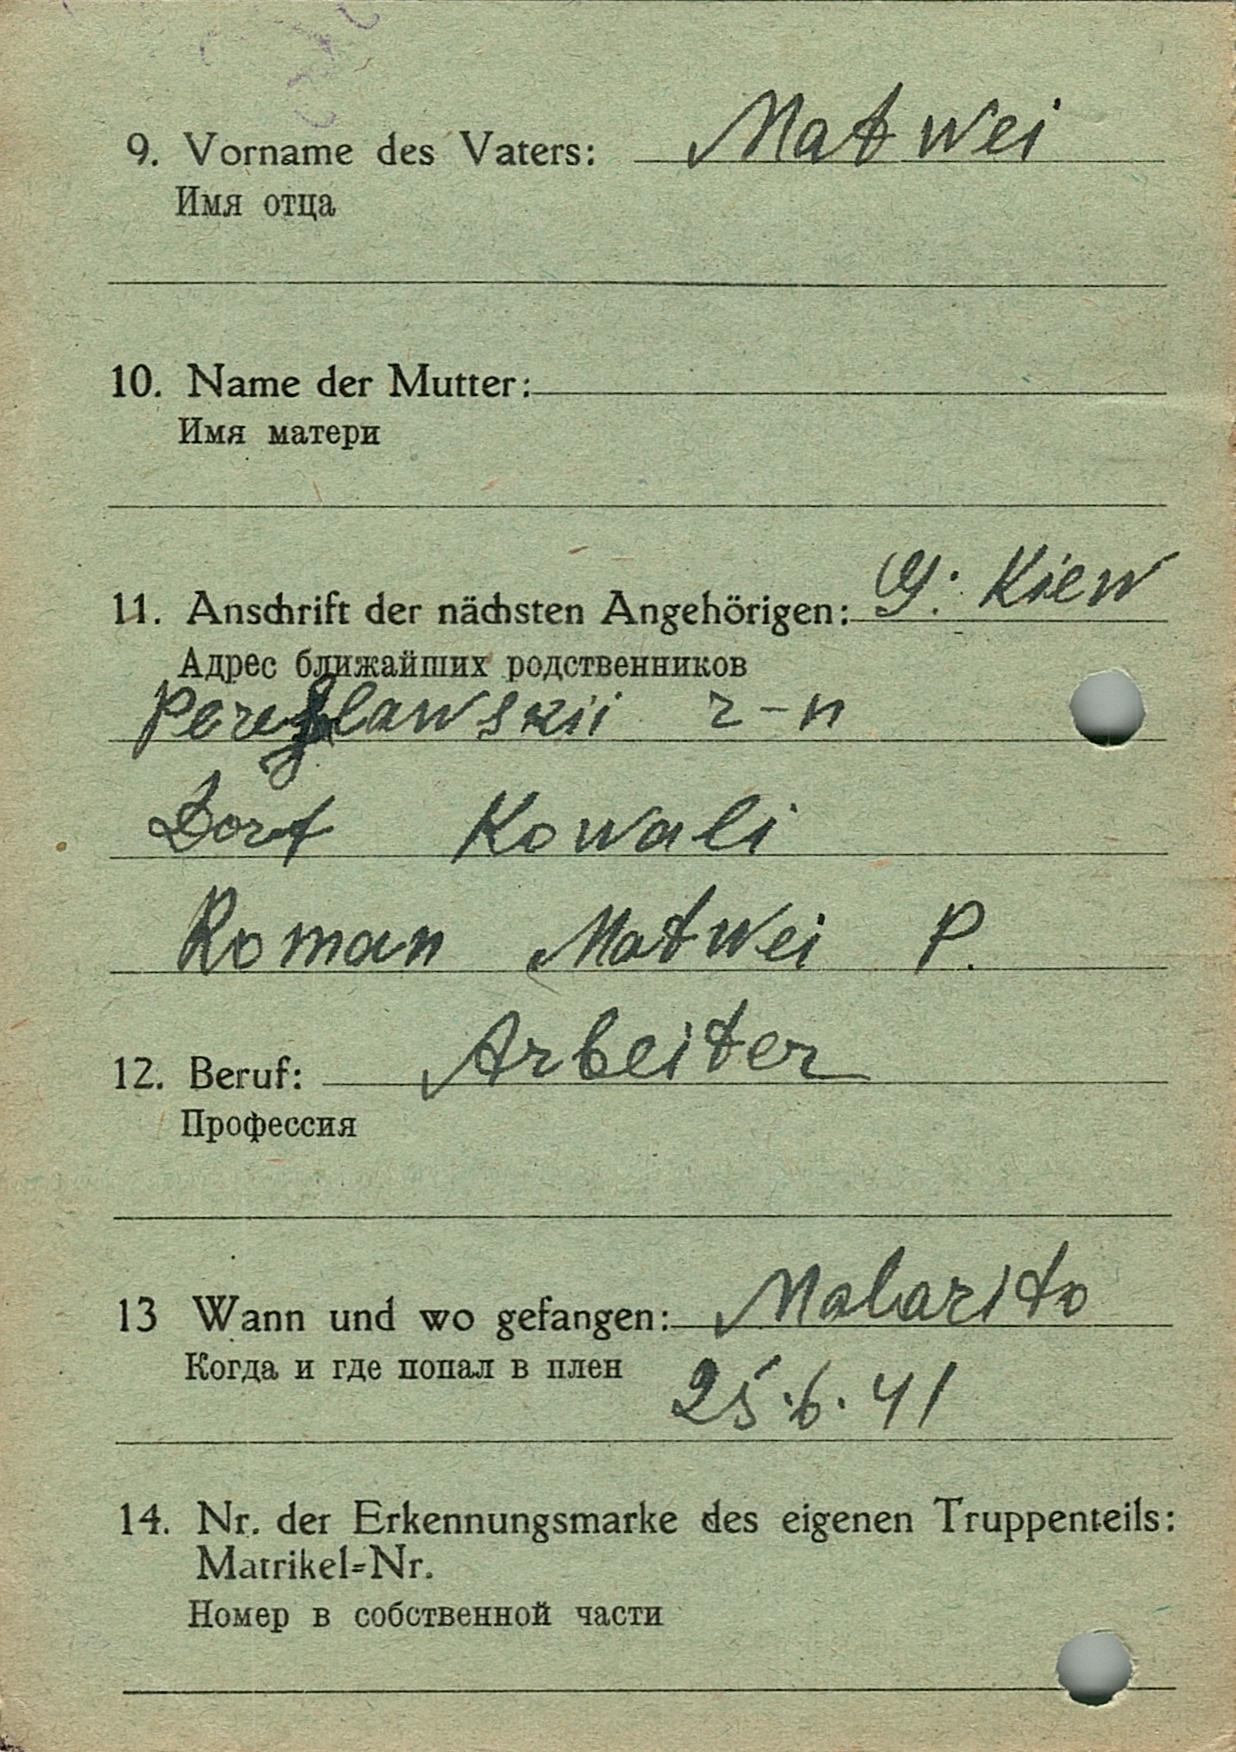 9. Vorname des Vaters: Matwei
Имя отца
10. Name der Mutter:
Имя матери
11. Anschrift der nächsten Angehörigen: G. Kiew
Адрес ближайших родственников
Pereslawskii r-n
Dorf Kowali
Roman Matwei P.
12. Beruf: Arbeiter
Профессия
13 Wann und wo gefangen: Malarito
Когда и где попал в плен
25.6.41
14. Nr. der Erkennungsmarke des eigenen Truppenteils:
Matrikel=Nr.
Номер в собственной части